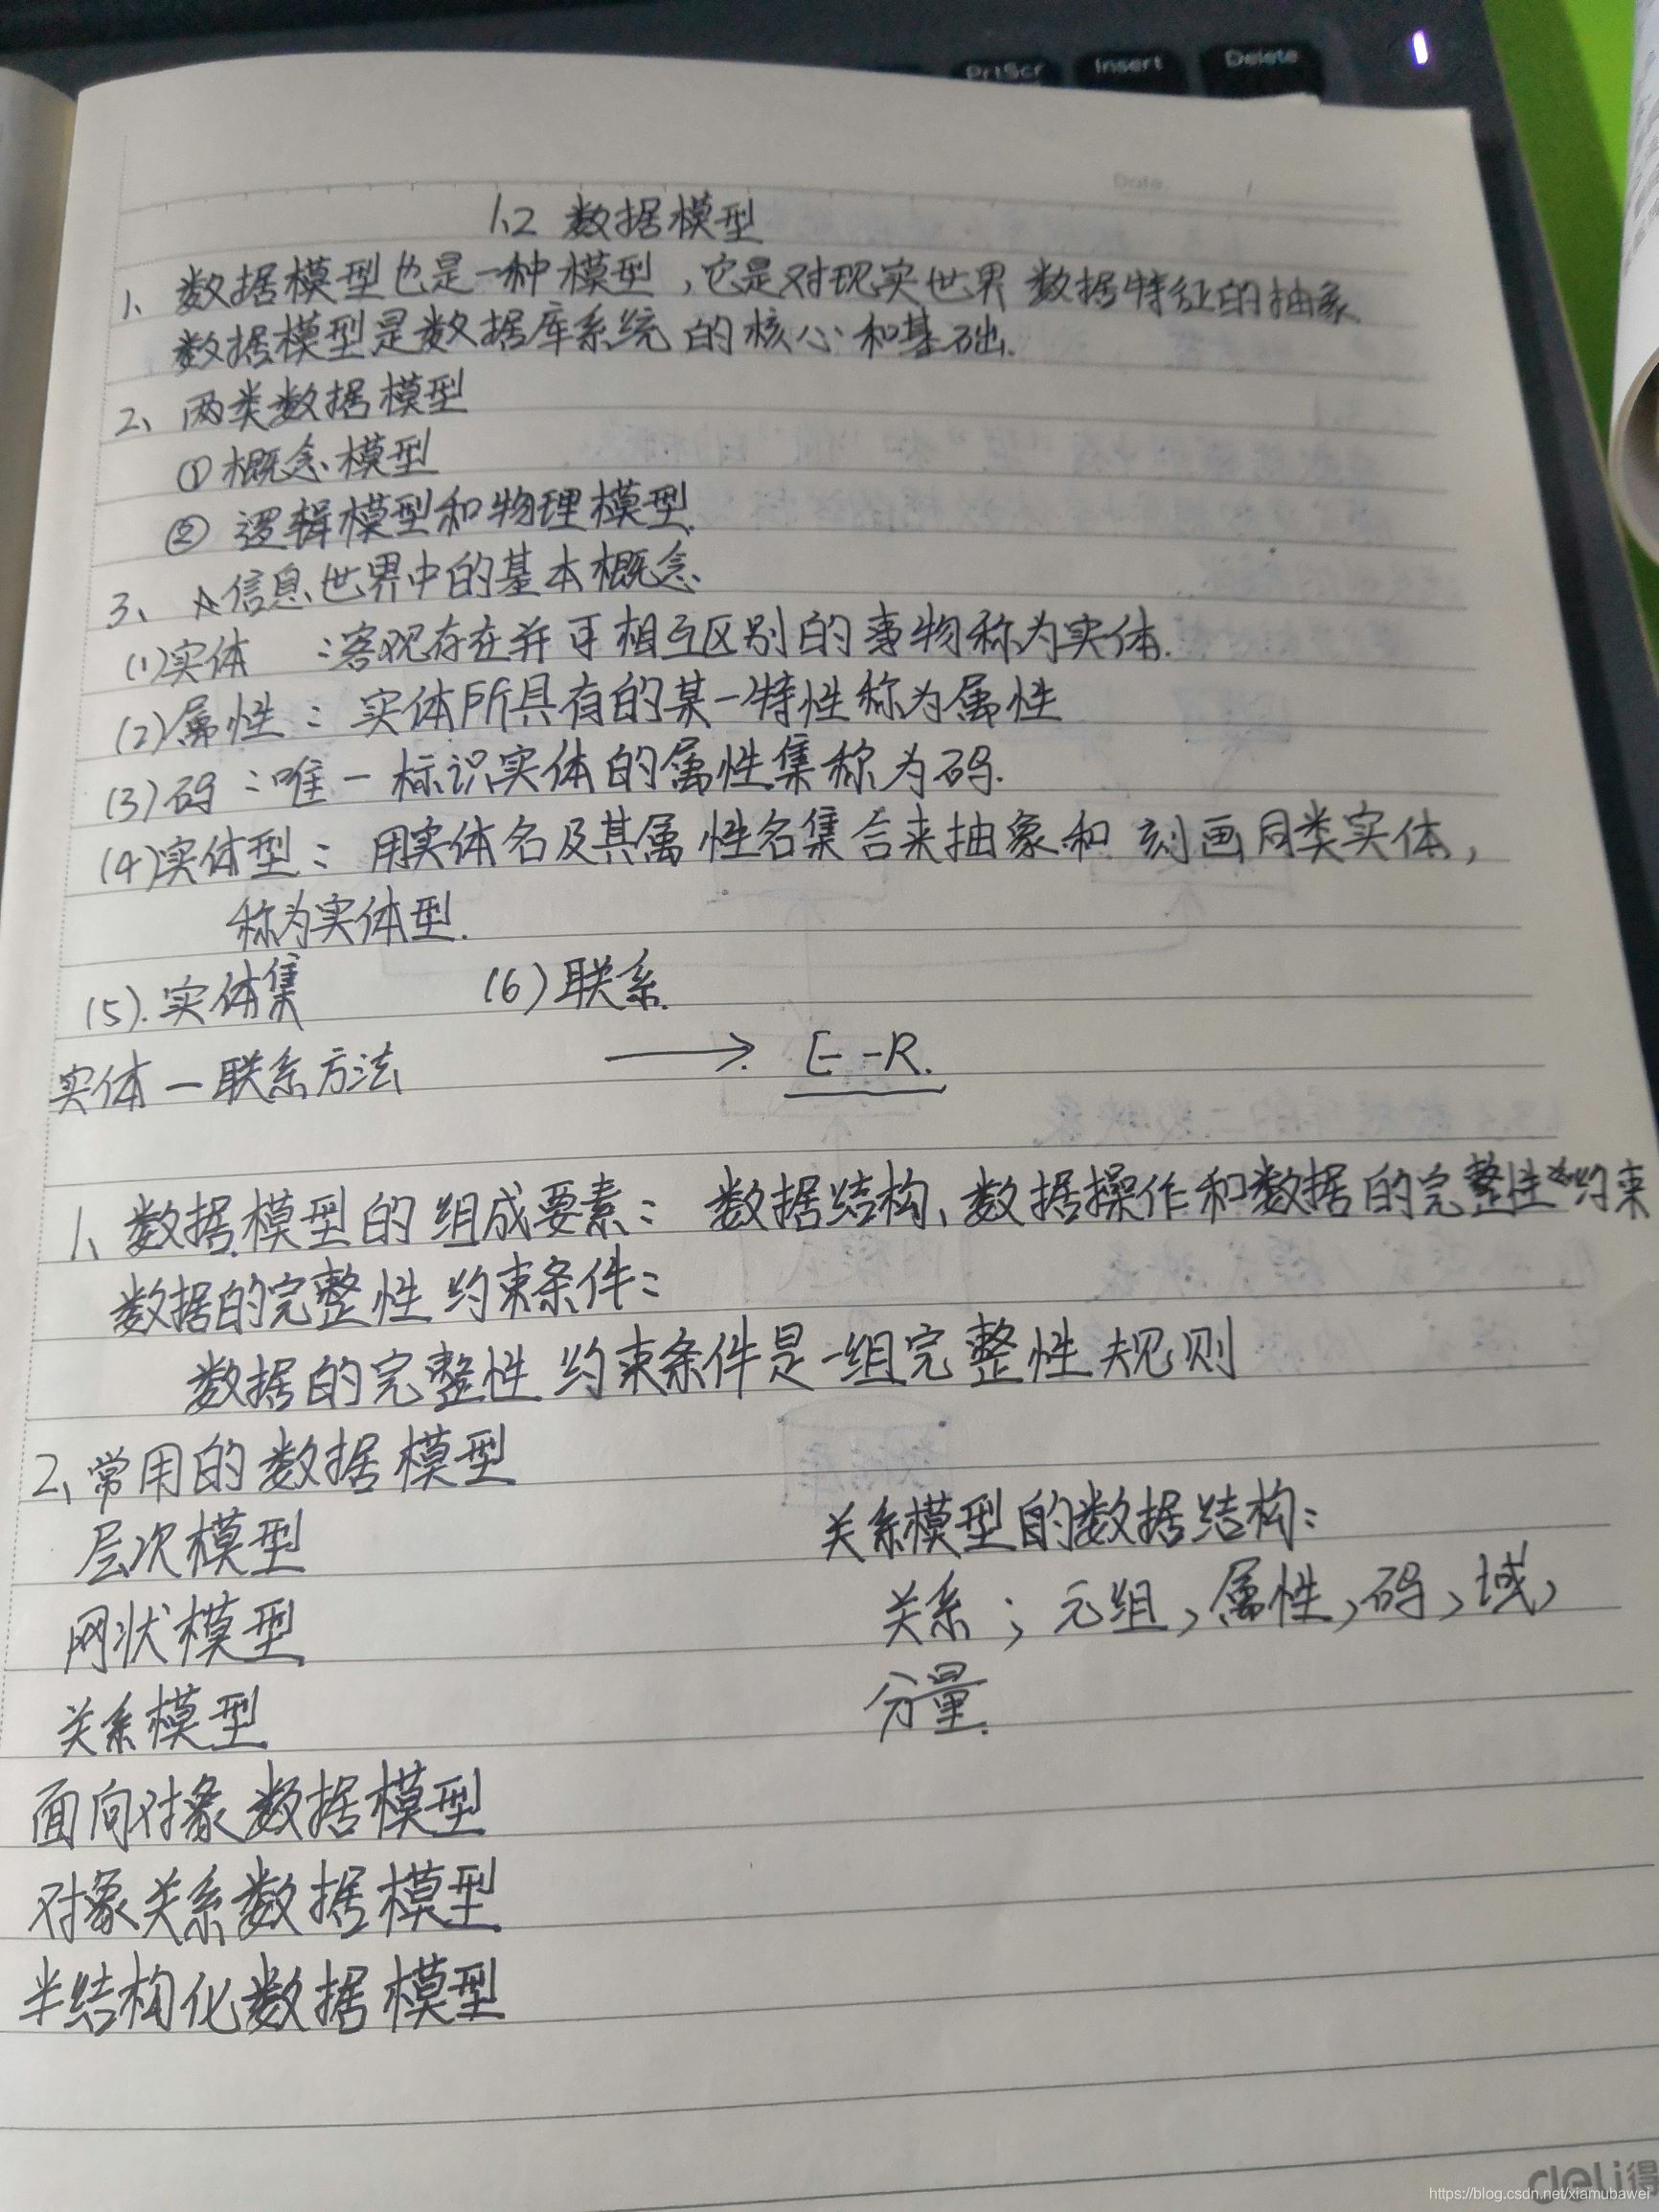 PrtScr Insert Delete
Date
1.2 数据模型
1、数据模型也是一种模型,它是对现实世界数据特征的抽象
数据模型是数据库系统的核心和基础.
2、两类数据模型
①概念模型
② 逻辑模型和物理模型.
3、信息世界中的基本概念
(1)实体 :客观存在并可相互区别的事物称为实体.
(2)属性:实体所具有的某一特性称为属性
(3)码:唯一标识实体的属性集称为码.
(4)实体型:用实体名及其属性名集合来抽象和刻画同类实体,
称为实体型.
(5).实体集 (6)联系.
实体一联系方法 → E-R.
1、数据模型的组成要素:数据结构、数据操作和数据的完整性约束
数据的完整性约束条件:
数据的完整性约束条件是一组完整性规则
2、常用的数据模型
层次模型
网状模型
关系模型
面向对象数据模型
对象关系数据模型
半结构化数据模型
关系模型的数据结构:
关系;元组,属性,码,域,
分量.
deli得
https://blog.csdn.net/xiamubawei